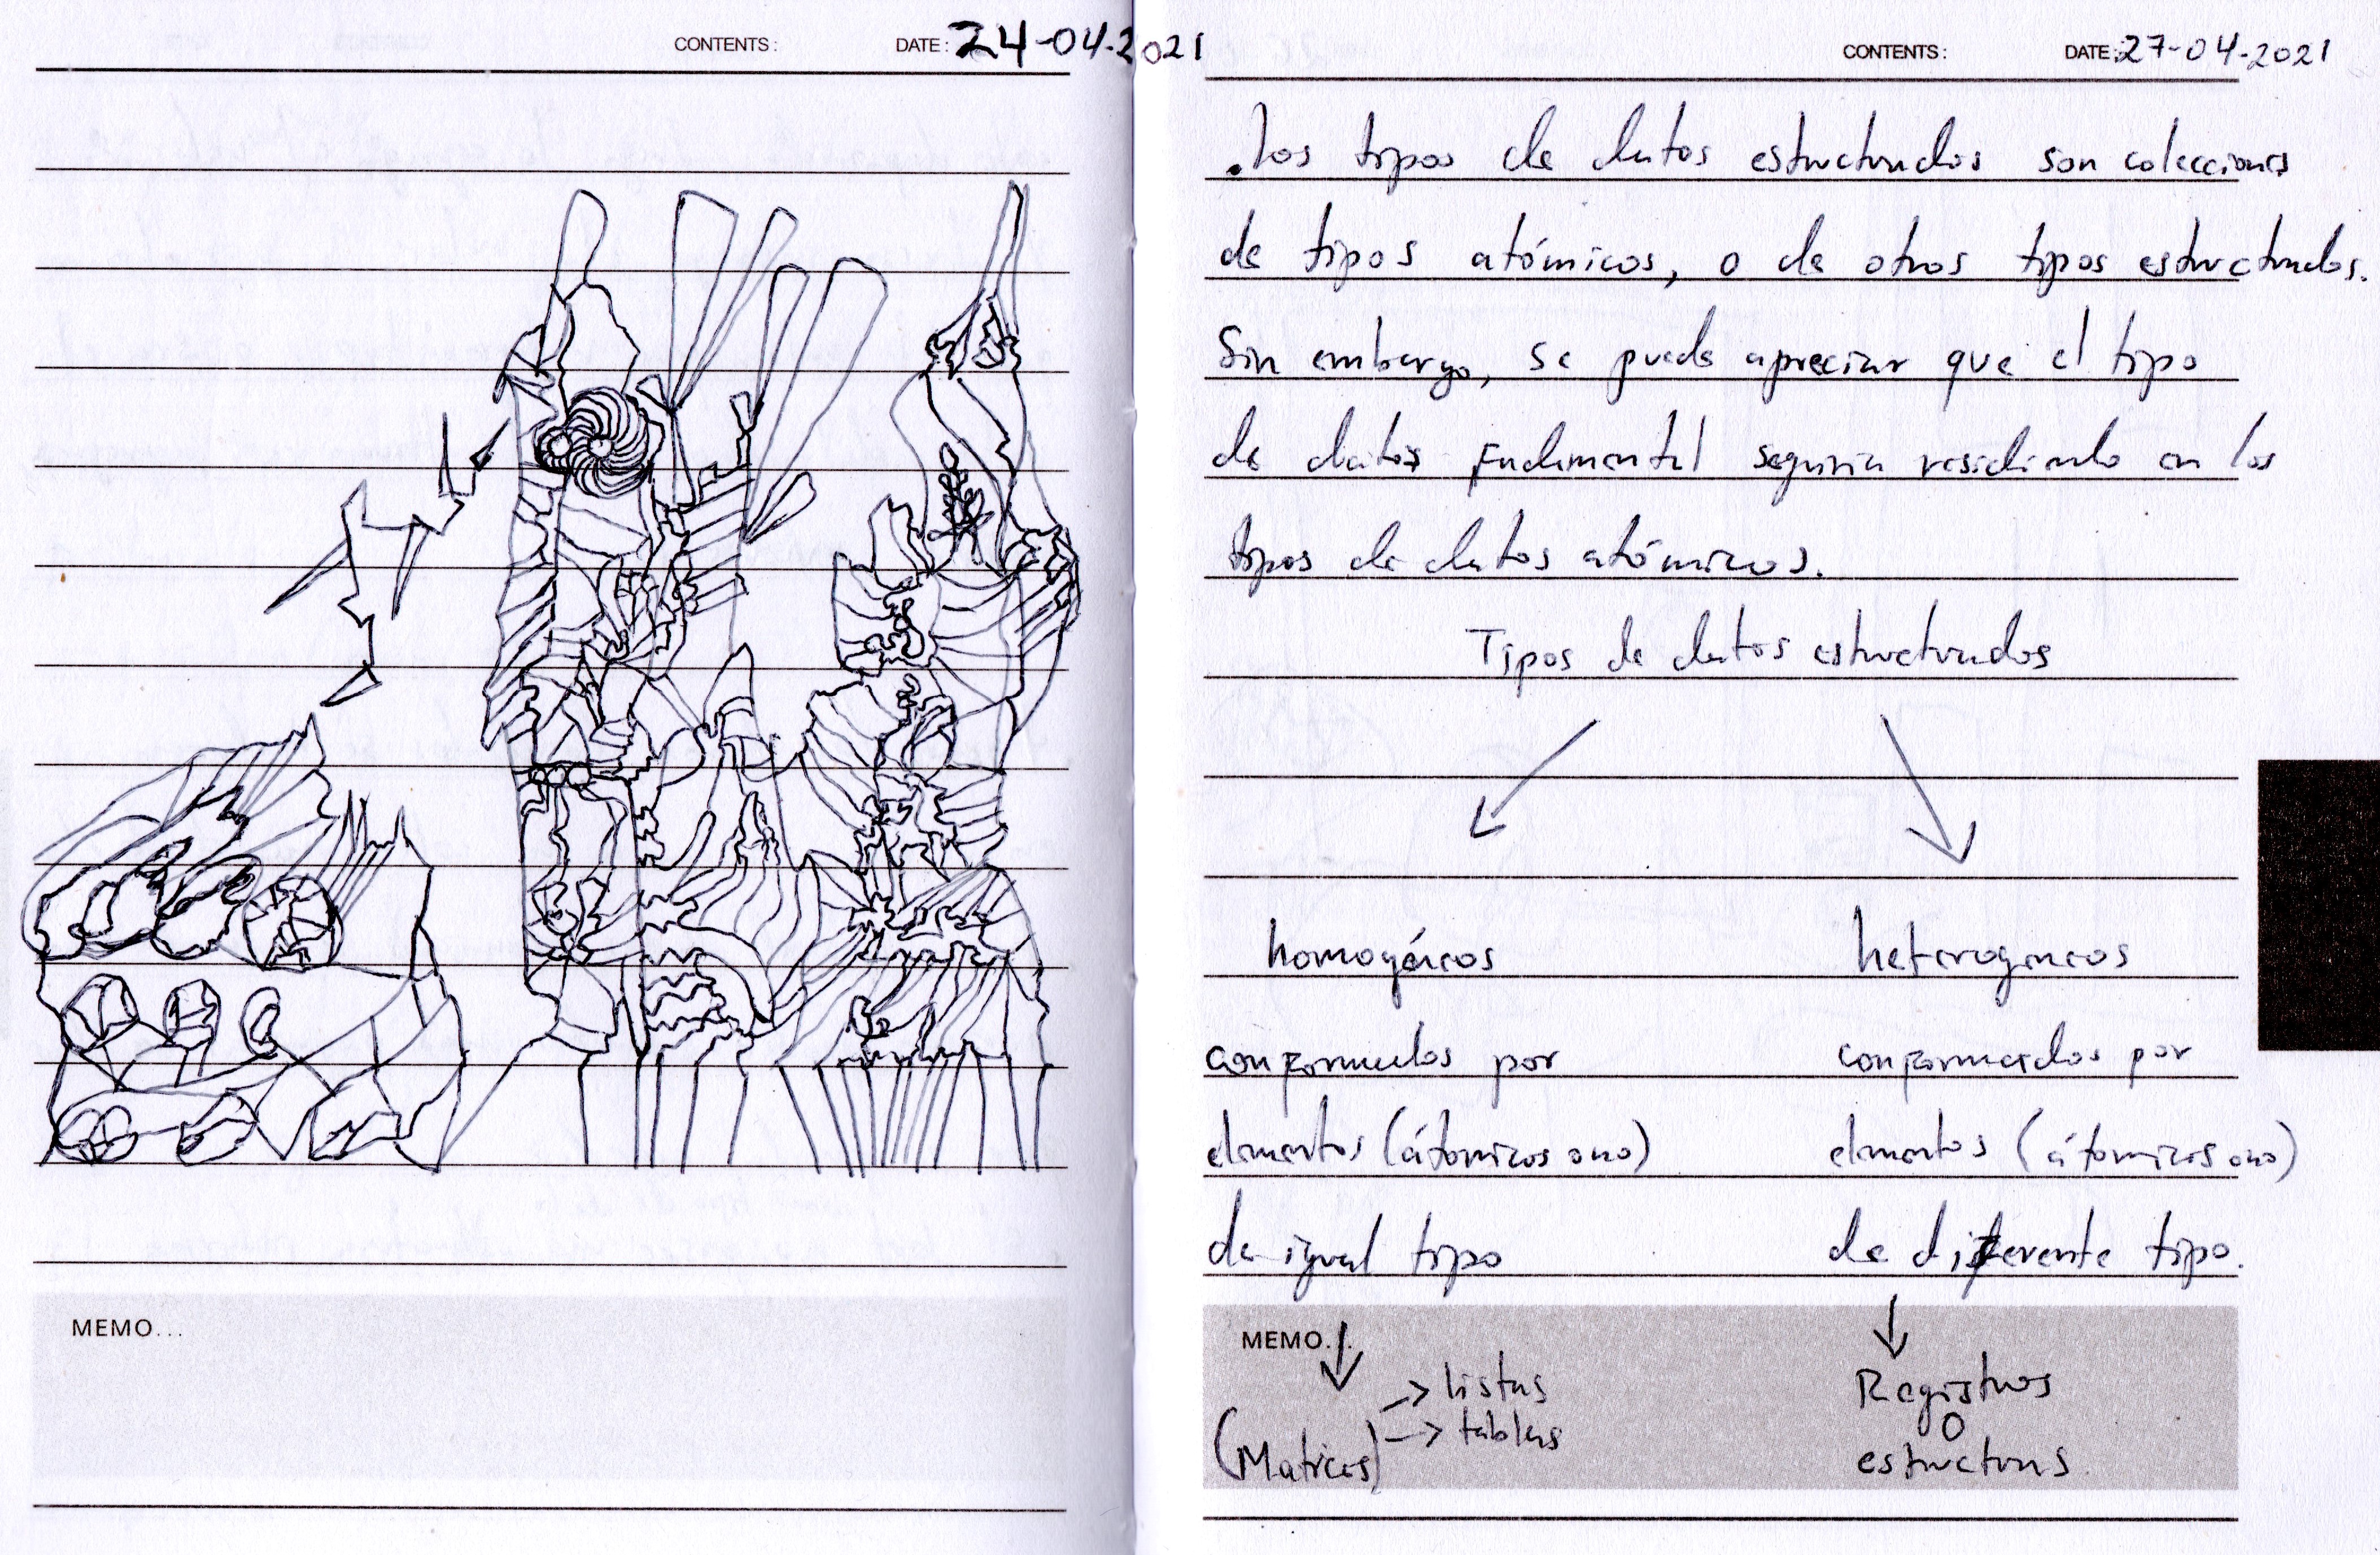 CONTENTS: DATE: 24-04-2021
MEMO...
CONTENTS: DATE: 27-04-2021
.Los tipos de datos estructurados son colecciones
de tipos atómicos, o de otros tipos estructurados.
Sin embargo, se puede apreciar que el tipo
de datos fundamental seguiria residiendo en los
tipos de datos atómicos.
Tipos de datos estructurados
homogéneos heterogeneos
conformados por conformados por
elementos (átomicos o no) elementos (átomicos o no)
de igual tipo de diferente tipo.
MEMO...
(Matrices) → listas
→ tablas
Registros
o
estructuras.